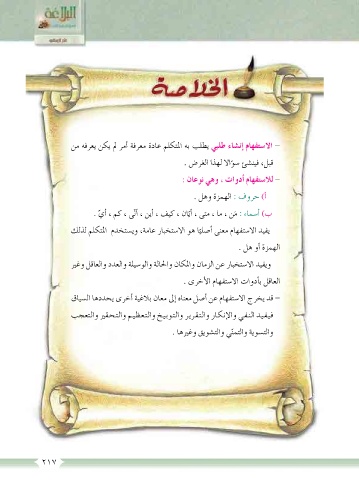 البلاغة
الخلاصة
– الاستفهام إنشاء طلبي يطلب به المتكلم عادة معرفة أمر لم يكن يعرفه من
قبل، فينشئ سؤالا لهذا الغرض .
– للاستفهام أدوات ، وهي نوعان :
أ) حروف : الهمزة وهل .
ب) أسماء : مَن ، ما ، متى ، أيّان ، كيف ، أين ، أنّى ، كم ، أيّ .
يفيد الاستفهام معنى أصليّا هو الاستخبار عامة، ويستخدم المتكلم لذلك
الهمزة أو هل .
ويفيد الاستخبار عن الزمان والمكان والحالة والوسيلة والعدد والعاقل وغير
العاقل بأدوات الاستفهام الأخرى .
– قد يخرج الاستفهام عن أصل معناه إلى معان بلاغية أخرى يحددها السياق
فيفيد النفي والإنكار والتقرير والتوبيخ والتعظيم والتحقير والتعجب
والتسوية والتمنّي والتشويق وغيرها .
٢١٧